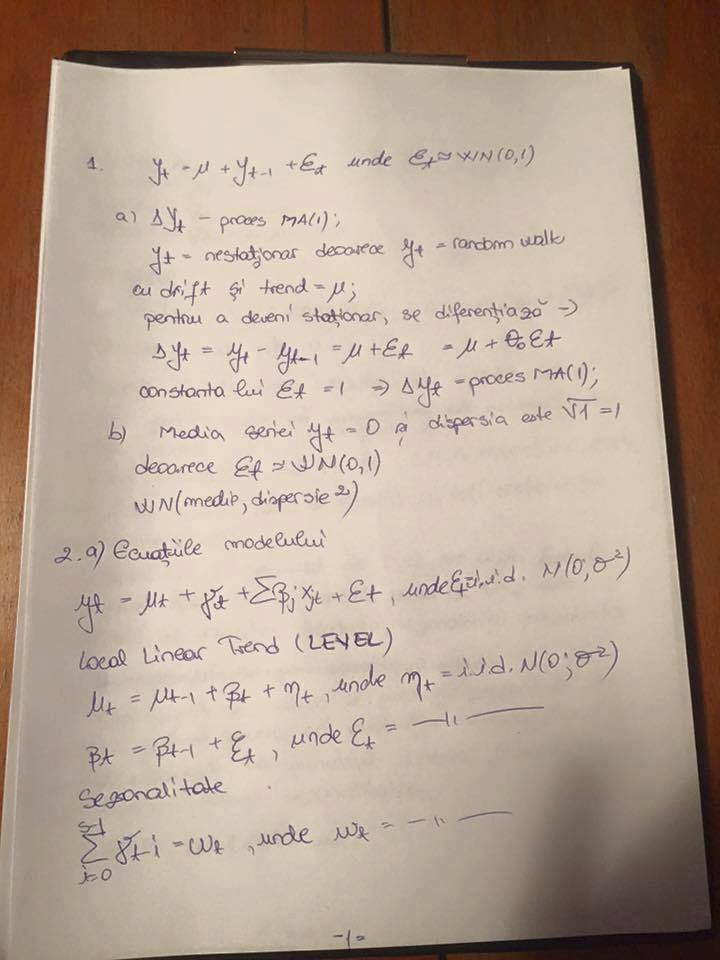 1. yt = μ + yt-1 + Et unde Et ≈ WN(0,1)
a) Δyt - proces MA(1);
yt = nestaționar deoarece yt = random walk
cu drift și trend = μ;
pentru a deveni staționar, se diferențiază =>
Δyt = yt - yt-1 = μ + Et = μ + θ0Et
constanta lui Et = 1 => Δyt = proces MA(1);
b) Media seriei yt = 0 și dispersia este √1 = 1
deoarece Et ≈ WN(0,1)
WN(medie, dispersie²)
2. a) Ecuațiile modelului
yt = μt + γt + Σβj xjt + Et, unde Et = i.i.d. N(0; σ²)
Local Linear Trend (LEVEL)
μt = μt-1 + βt + ηt, unde ηt = i.i.d. N(0; σ²)
βt = βt-1 + ξt, unde ξt = —11—
Sezonalitate
s-1
Σ γt-i = ωt, unde ωt = —11—
i=0
-1-